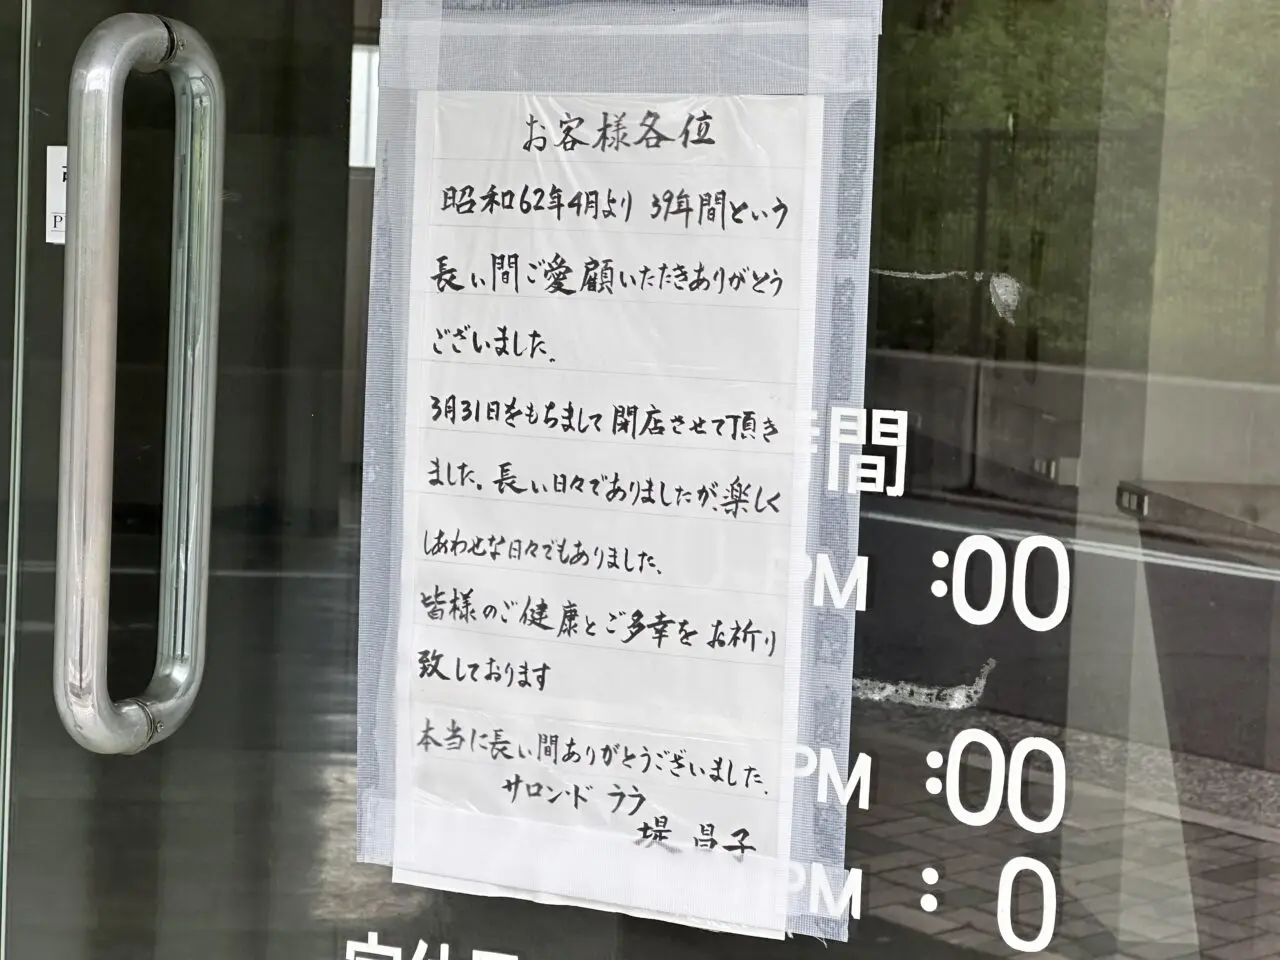 お客様各位
昭和62年4月より 39年間という
長い間ご愛顧いただきありがとう
ございました。
3月31日をもちまして閉店させて頂き
ました。長い日々でありましたが、楽しく
しあわせな日々でもありました、
皆様のご健康とご多幸をお祈り
致しております
本当に長い間ありがとうございました。
サロン・ド ララ
堤 昌子
間
PM :00
PM :00
PM : 0